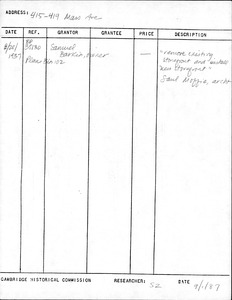 ADDRESS: 415-419 Mass Ave
DATE REF. GRANTOR GRANTEE PRICE DESCRIPTION
1937 Samuel Barkin, owner — "remove existing
storefront and install
new storefront"
Plan Bin 02
Saul Moffie, archt
CAMBRIDGE HISTORICAL COMMISSION RESEARCHER: SZ DATE